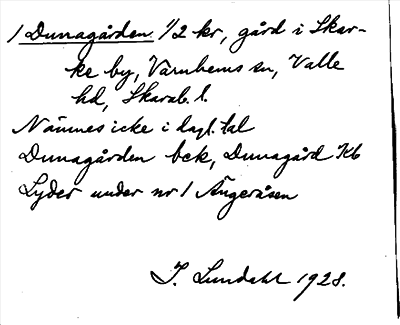 1 Dunagården 1/2 kr, gård i Skar-
ke by, Varnhems sn, Valle
hd, Skarab. l.
Nämnes icke i dagl. tal
Dunagården bck, Dunagård Kb
Lyder under nr 1 Ängeråsen
I. Lundahl 1928.